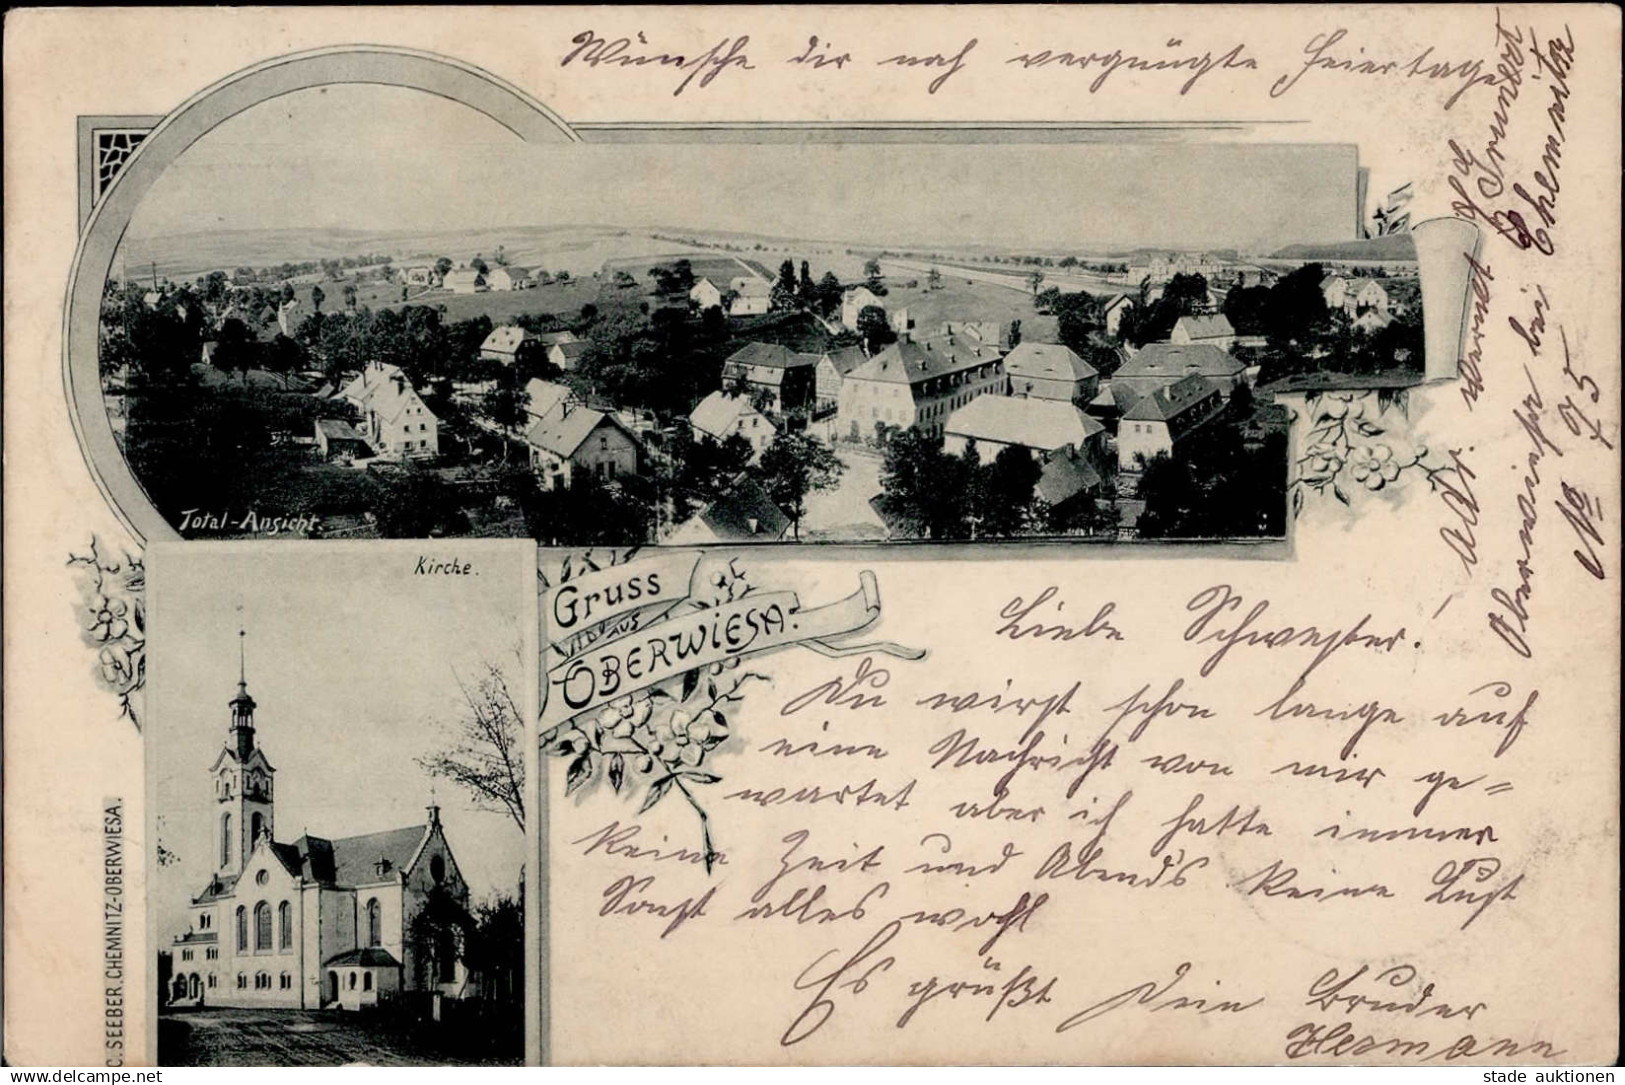 Wünsche dir noch vergnügte Feiertage
Total-Ansicht.
Kirche.
Gruss
aus
OBERWIESA.
Liebe Schwester!
Du wirst schon lange auf
eine Nachricht von mir ge=
wartet aber ich hatte immer
keine Zeit und Abends keine Lust
Sonst alles wohl
Es grüßt Dein Bruder
Hermann
Oberwiesa bei Chemnitz
No 75
C. SEEBER, CHEMNITZ-OBERWIESA.
stade auktionen